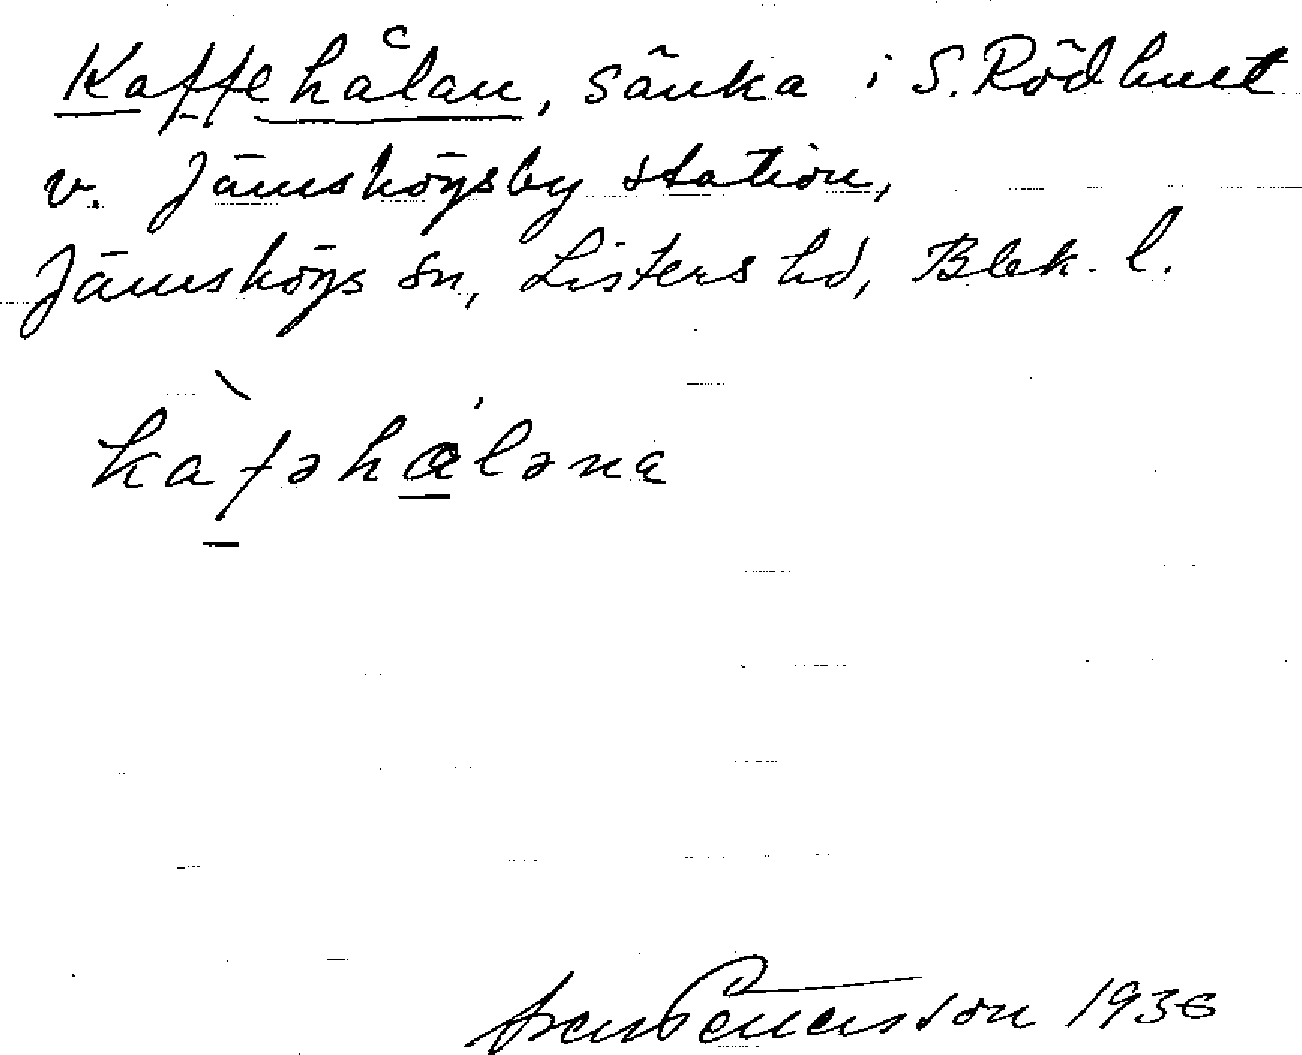 Kaffehålan, sänka i S. Rödhult
v. Jämshögsby station,
Jämshögs sn, Listers hd, Blek. l.
kafəhaləna
Pettersson 1936